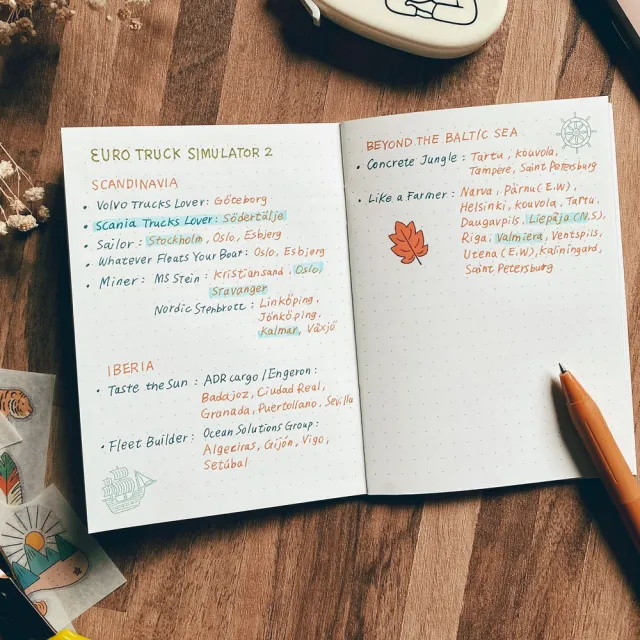 EURO TRUCK SIMULATOR 2
SCANDINAVIA
• Volvo Trucks Lover: Göteborg
• Scania Trucks Lover: Södertälje
• Sailor: Stockholm, Oslo, Esbjerg
• Whatever Floats Your Boat: Oslo, Esbjerg
• Miner: MS Stein: Kristiansand, Oslo,
Stavanger
Nordic Stenbrott: Linköping,
Jönköping,
Kalmar, Växjö
IBERIA
• Taste the Sun: ADR cargo / Engeron:
Badajoz, Ciudad Real,
Granada, Puertollano, Sevilla
• Fleet Builder: Ocean Solutions Group:
Algeciras, Gijón, Vigo,
Setúbal
BEYOND THE BALTIC SEA
• Concrete Jungle: Tartu, Kouvola,
Tampere, Saint Petersburg
• Like a Farmer: Narva, Pärnu (E.W),
Helsinki, Kouvola, Tartu,
Daugavpils, Liepāja (N.S),
Riga, Valmiera, Ventspils,
Utena (E.W), Kaliningard,
Saint Petersburg